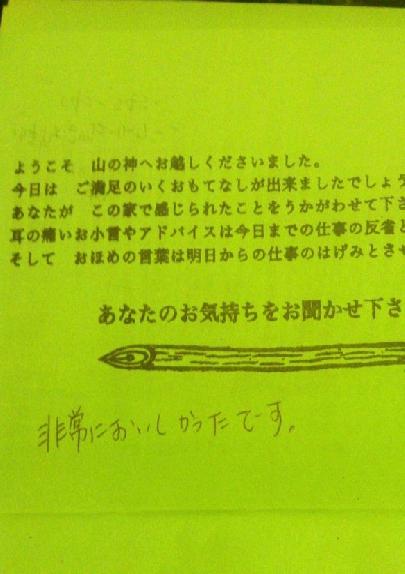 ようこそ　山の神へお越しくださいました。
今日は　ご満足のいくおもてなしが出来ましたでしょう
あなたが　この家で感じられたことをうかがわせて下さ
耳の痛いお小言やアドバイスは今日までの仕事の反省と
そして　おほめの言葉は明日からの仕事のはげみとさせ
あなたのお気持ちをお聞かせ下さ
非常においしかったでーす。